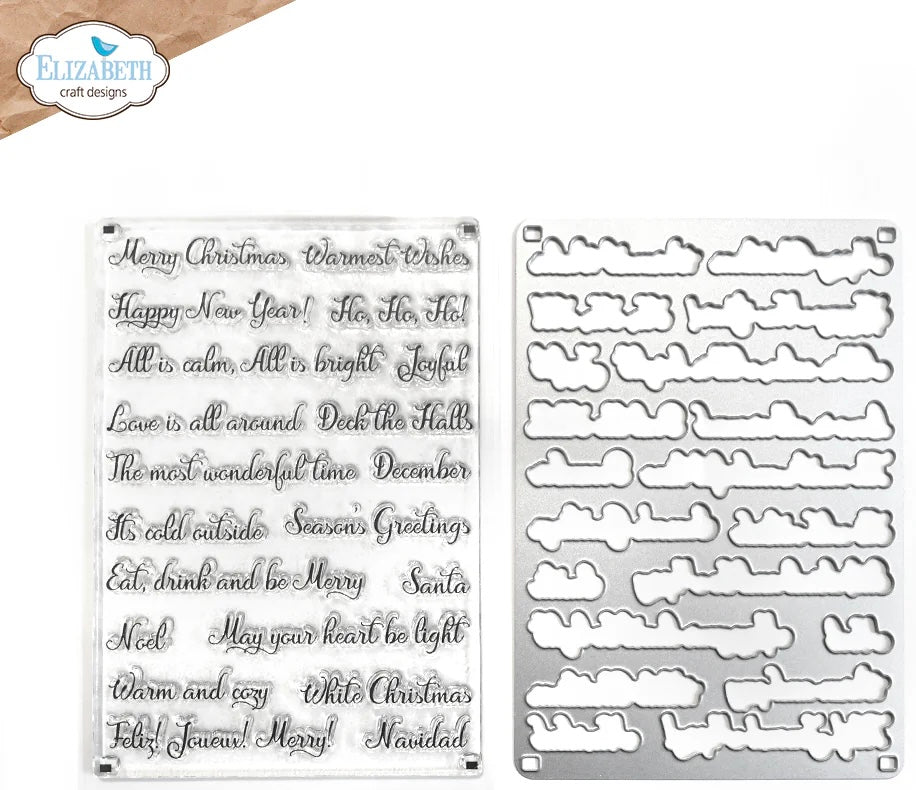 ELIZABETH
craft designs
Merry Christmas Warmest Wishes
Happy New Year! Ho, Ho, Ho!
All is calm, All is bright Joyful
Love is all around Deck the Halls
The most wonderful time December
It's cold outside Season's Greetings
Eat, drink and be Merry Santa
Noel May your heart be light
Warm and cozy White Christmas
Feliz! Joueux! Merry! Navidad